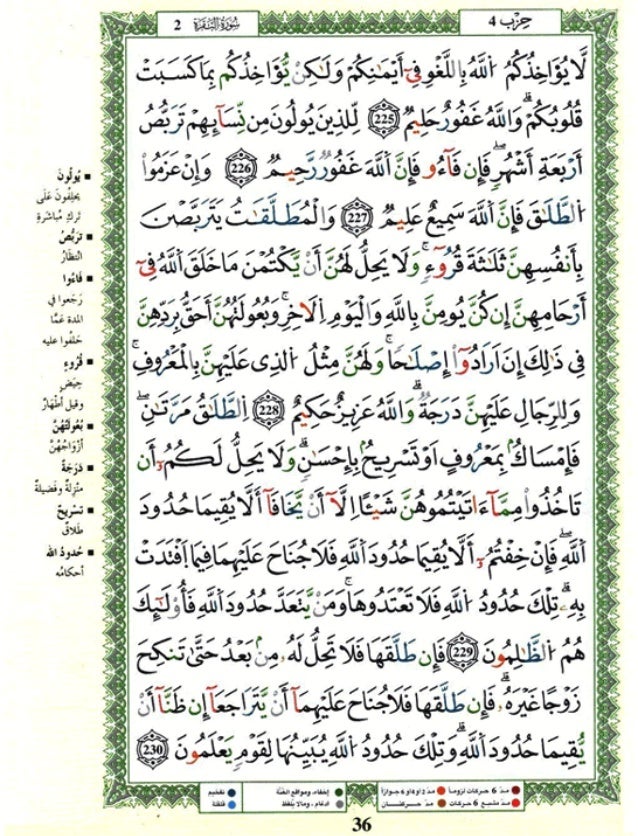 حِزْب 4
سُورَةُ البَقَرَة 2
لَّا يُوَاخِذُكُمُ اُللَّهُ بِاللَّغْوِ فِىٓ أَيْمَٰنِكُمْ وَلَٰكِنْ يُّوَاخِذُكُم بِمَا كَسَبَتْ
قُلُوبُكُمْۗ وَاللَّهُ غَفُورٌ حَلِيمٌ 225 لِّلذِينَ يُولُونَ مِن نِّسَآئِهِمْ تَرَبُّصُ
أَرْبَعَةِ أَشْهُرٍۖ فَإِن فَآءُو فَإِنَّ اَللَّهَ غَفُورٌ رَّحِيمٌ 226 وَإِنْ عَزَمُواْ
اُلطَّلَٰقَ فَإِنَّ اَللَّهَ سَمِيعٌ عَلِيمٌ 227 وَالْمُطَلَّقَٰتُ يَتَرَبَّصْنَ
بِأَنفُسِهِنَّ ثَلَٰثَةَ قُرُوٓءٍۚ وَلَا يَحِلُّ لَهُنَّ أَنْ يَّكْتُمْنَ مَا خَلَقَ اَللَّهُ فِىٓ
أَرْحَامِهِنَّ إِن كُنَّ يُومِنَّ بِاللَّهِ وَالْيَوْمِ اِلَاخِرِۚ وَبُعُولَتُهُنَّ أَحَقُّ بِرَدِّهِنَّ
فِى ذَٰلِكَ إِنَ اَرَادُوٓاْ إِصْلَٰحاًۚ وَلَهُنَّ مِثْلُ اُلذِى عَلَيْهِنَّ بِالْمَعْرُوفِۚ
وَلِلرِّجَالِ عَلَيْهِنَّ دَرَجَةٌۗ وَاللَّهُ عَزِيزٌ حَكِيمٌ 228 اِلطَّلَٰقُ مَرَّتَٰنِۖ
فَإِمْسَاكٌۢ بِمَعْرُوفٍ اَوْ تَسْرِيحٌۢ بِإِحْسَٰنٍۗ وَلَا يَحِلُّ لَكُمُۥٓ أَن
تَاخُذُواْ مِمَّآ ءَاتَيْتُمُوهُنَّ شَيْـًٔا اِلَّآ أَنْ يَّخَافَآ أَلَّا يُقِيمَا حُدُودَ
اَللَّهِۖ فَإِنْ خِفْتُمُۥٓ أَلَّا يُقِيمَا حُدُودَ اَللَّهِ فَلَا جُنَاحَ عَلَيْهِمَا فِيمَا اَفْتَدَتْ
بِهِۦۗ تِلْكَ حُدُودُ اُللَّهِ فَلَا تَعْتَدُوهَاۚ وَمَنْ يَّتَعَدَّ حُدُودَ اَللَّهِ فَأُوْلَٰٓئِكَ
هُمُ اُلظَّٰلِمُونَ 229 فَإِن طَلَّقَهَا فَلَا تَحِلُّ لَهُۥ مِنۢ بَعْدُ حَتَّىٰ تَنكِحَ
زَوْجاً غَيْرَهُۥۗ فَإِن طَلَّقَهَا فَلَا جُنَاحَ عَلَيْهِمَآ أَنْ يَّتَرَاجَعَآ إِن ظَنَّآ أَنْ
يُّقِيمَا حُدُودَ اَللَّهِۗ وَتِلْكَ حُدُودُ اُللَّهِ يُبَيِّنُهَا لِقَوْمٍ يَعْلَمُونَ 230
■ يُولُونَ
يحلِفُونَ عَلَى
تركِ مُباشَرةِ
■ تَربُّصُ
انتظارُ
■ فَاءُوا
رَجَعوا في
المدة عَمَّا
حَلفوا عليه
■ قُرُوءٍ
حِيَضٍ
وقيل أطْهَارٌ
■ بُعُولَتُهُنَّ
أزْوَاجُهُنَّ
■ دَرَجَةٌ
منْزِلةٌ وفَضيلةٌ
■ تسْريحٌ
طَلاقٌ
■ حُدودُ الله
أحكامُه
● مدّ 6 حركات لزوماً ● مدّ 2 أو 4 أو 6 جوازاً ● إخفاء، ومواقع الغُنَّة ● تفخيم
● مدّ مشبع 6 حركات ● مدّ حركتــان ● ادغام، وما لا يُلفَظ ● قلقلة
36